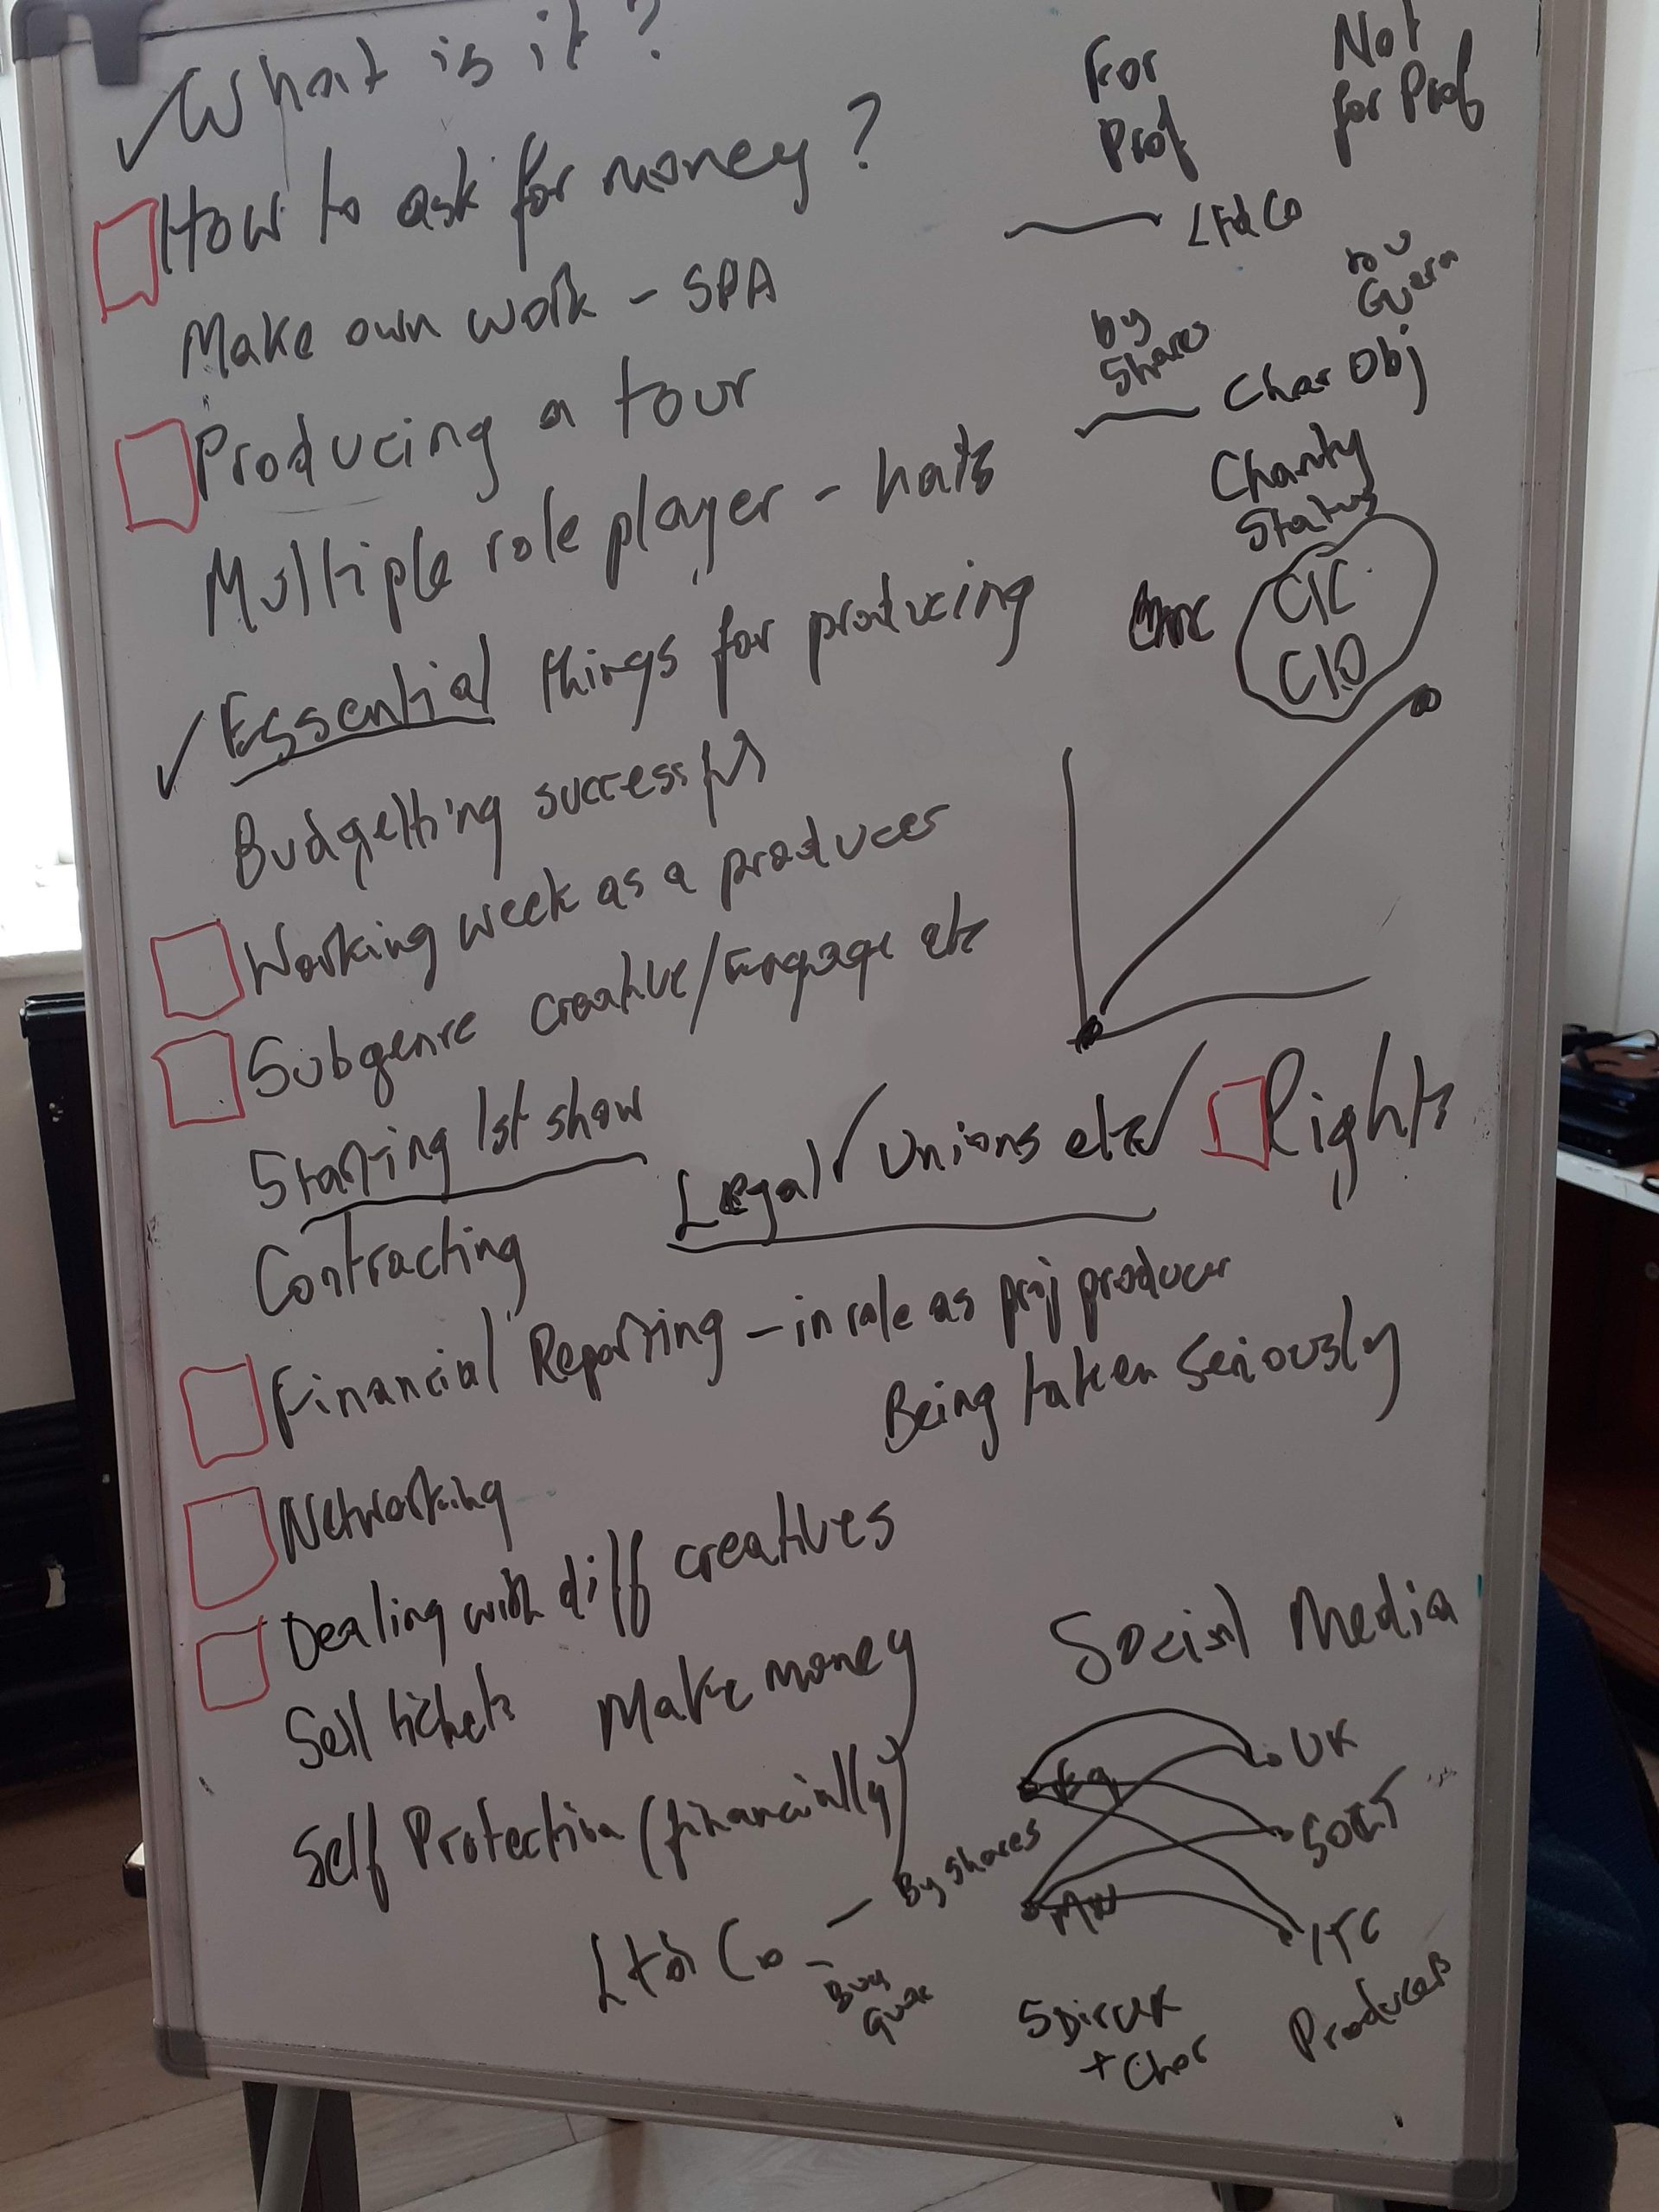 What is it?
How to ask for money?
Make own work - SPA
Producing a tour
Multiple role player - hats
Essential things for producing
Budgetting successful
Working week as a producer
Subgenre creative/Engage etc
Starting 1st show
Contracting
Legal / Unions etc / Rights
Financial Reporting - in role as proj producer
Being taken seriously
Networking
Dealing with diff creatives
Sell tickets Make money
Self Protection (financially)
Ltd Co - By shares
Guar
For
Prof
Not
for Prof
Ltd Co
by
Shares
Guara
Char Obj
Charity
Status
CIC
CIO
Social Media
UK
SOLT
ITC
Producers
5 Direct
+ Char